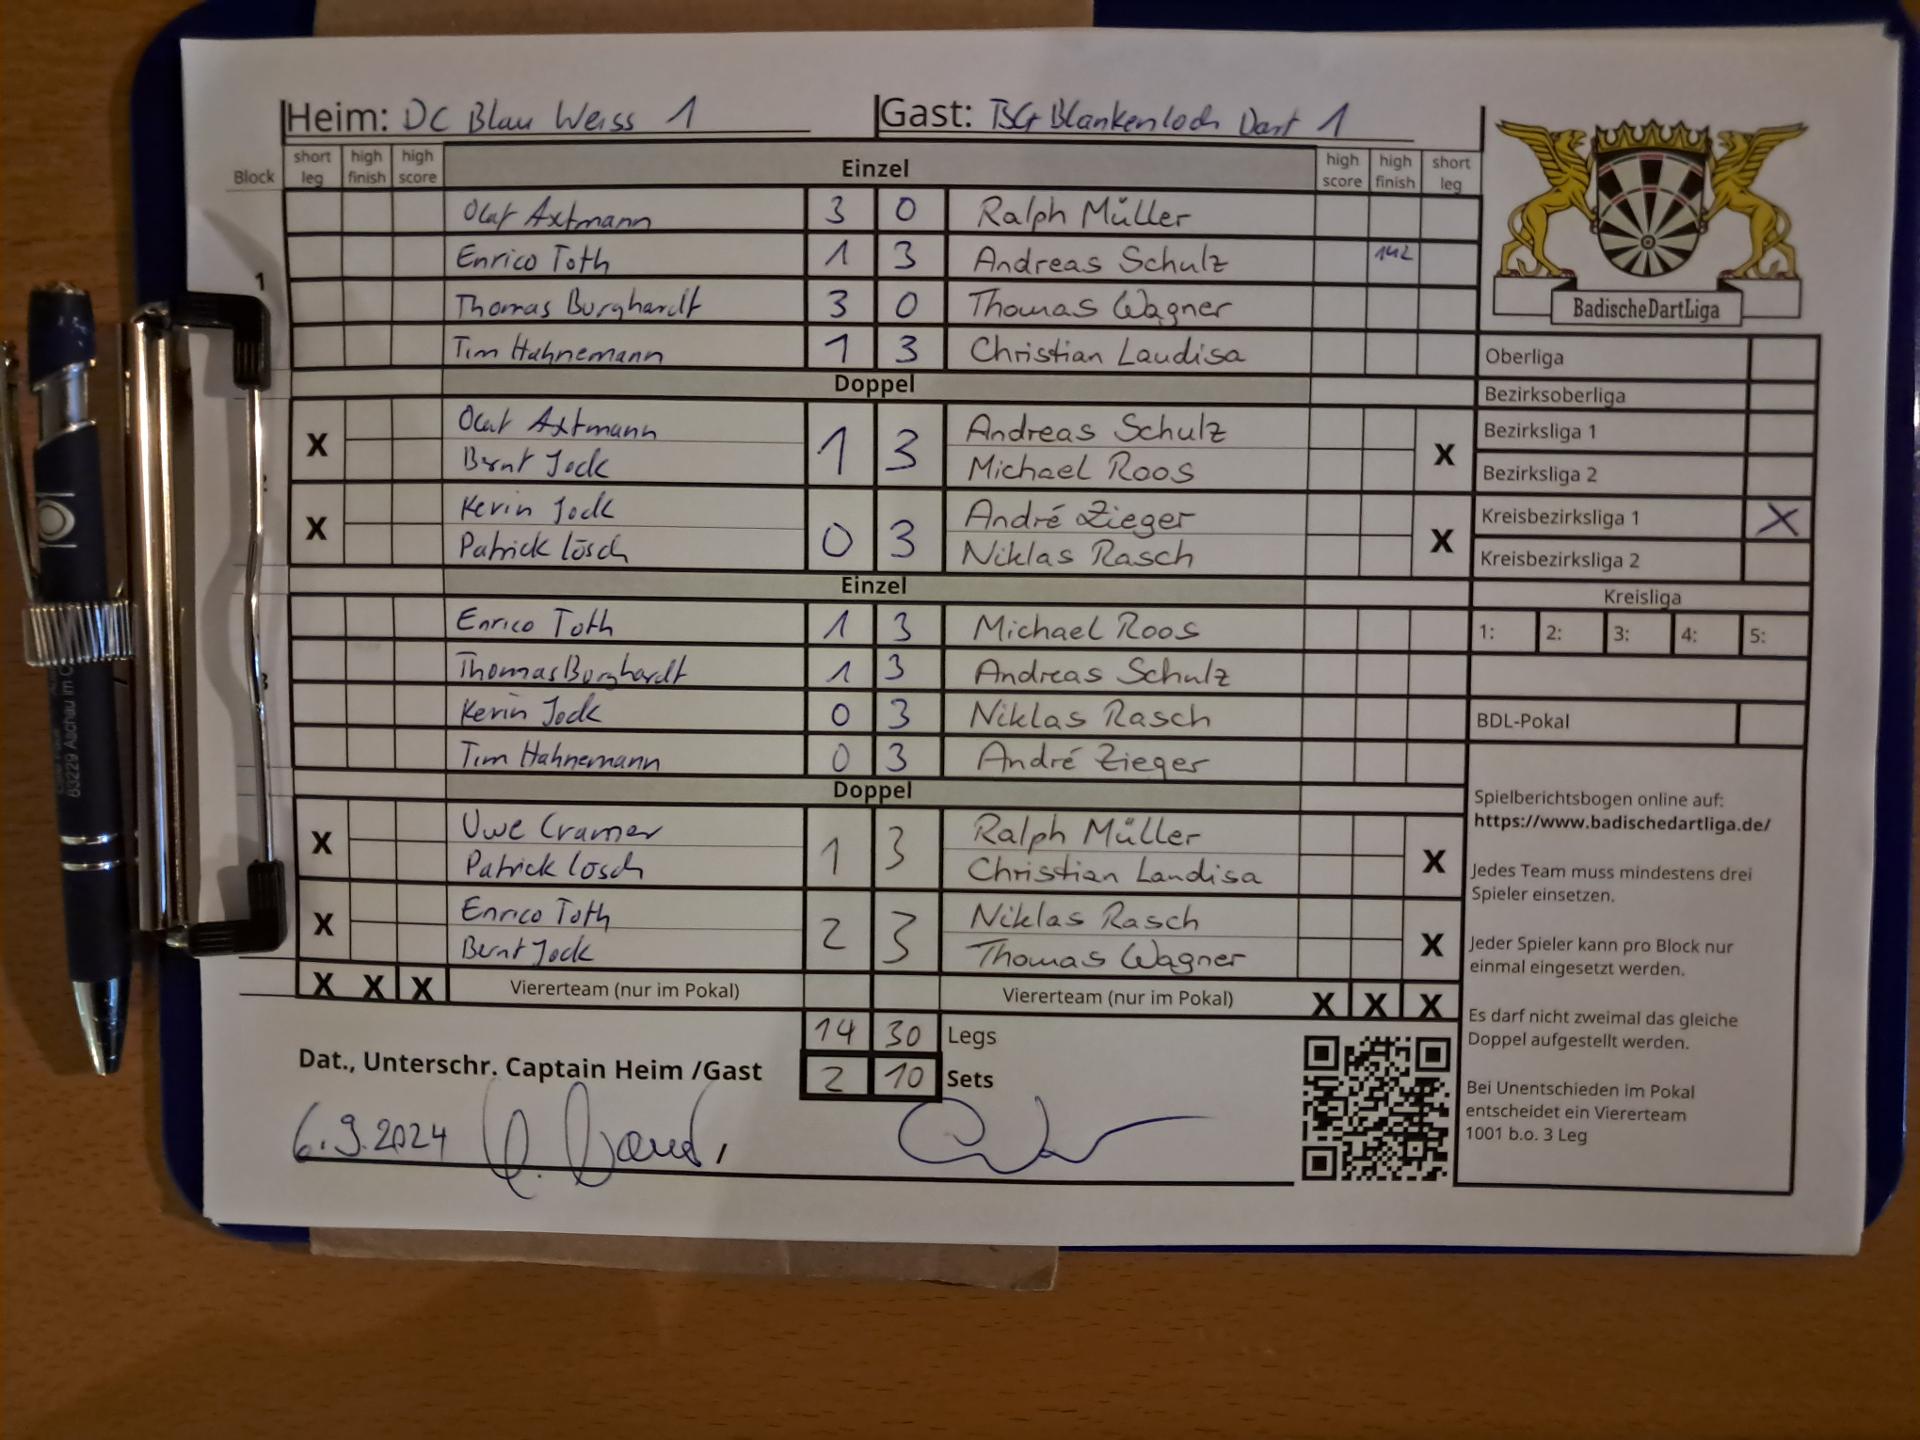 Heim: DC Blau Weiss 1 Gast: TSG Blankenloch Dart 1
Block short leg high finish high score Einzel high score high finish short leg
Olaf Axtmann 3 0 Ralph Müller
1 Enrico Toth 1 3 Andreas Schulz 142
Thomas Burghardt 3 0 Thomas Wagner
Tim Hahnemann 1 3 Christian Laudisa
Doppel
X Olaf Axtmann 1 3 Andreas Schulz X
Bernt Jock Michael Roos
X Kevin Jock 0 3 André Zieger X
Patrick Lösch Niklas Rasch
Einzel
Enrico Toth 1 3 Michael Roos
Thomas Burghardt 1 3 Andreas Schulz
3 Kevin Jock 0 3 Niklas Rasch
Tim Hahnemann 0 3 André Zieger
Doppel
X Uwe Cramer 1 3 Ralph Müller X
Patrick Lösch Christian Laudisa
X Enrico Toth 2 3 Niklas Rasch X
Bernt Jock Thomas Wagner
X X X Viererteam (nur im Pokal) Viererteam (nur im Pokal) X X X
14 30 Legs
Dat., Unterschr. Captain Heim /Gast 2 10 Sets
6.9.2024
BadischeDartLiga
Oberliga
Bezirksoberliga
Bezirksliga 1
Bezirksliga 2
Kreisbezirksliga 1 X
Kreisbezirksliga 2
Kreisliga
1: 2: 3: 4: 5:
BDL-Pokal
Spielberichtsbogen online auf:
https://www.badischedartliga.de/
Jedes Team muss mindestens drei
Spieler einsetzen.
Jeder Spieler kann pro Block nur
einmal eingesetzt werden.
Es darf nicht zweimal das gleiche
Doppel aufgestellt werden.
Bei Unentschieden im Pokal
entscheidet ein Viererteam
1001 b.o. 3 Leg
83229 Aschau im